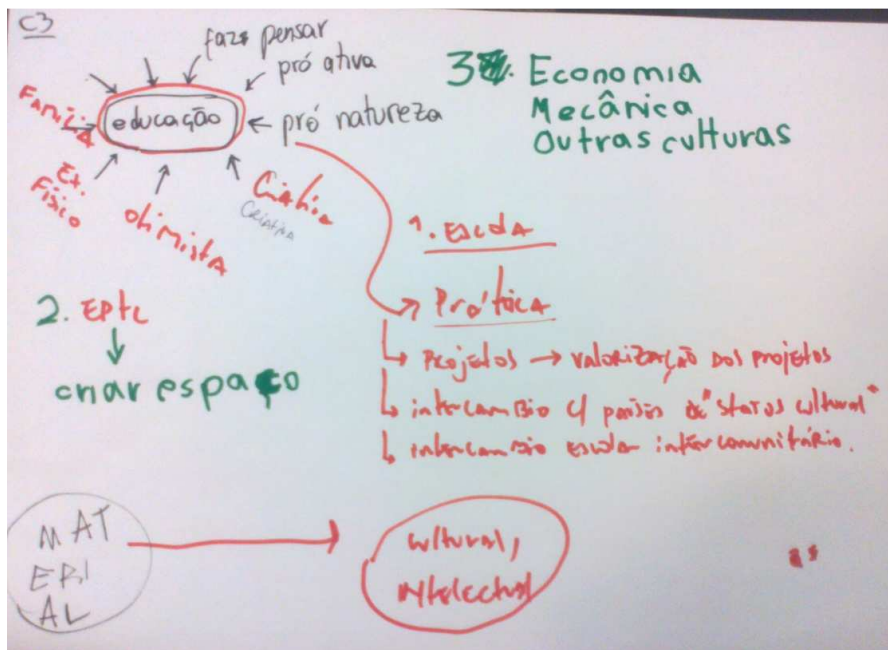 C3
faze pensar
pró ativa
pró natureza
educação
FAMILIA
Ex.
Físico
otimista
Criativa
CRIATIVA
3. Economia
Mecânica
Outras culturas
1. Escola
Prática
Projetos → valorização dos projetos
intercambio c/ países de "status cultural"
intercambio escolar intercomunitário.
2.
criar espaço
MAT
ERI
AL
cultural,
intelectual